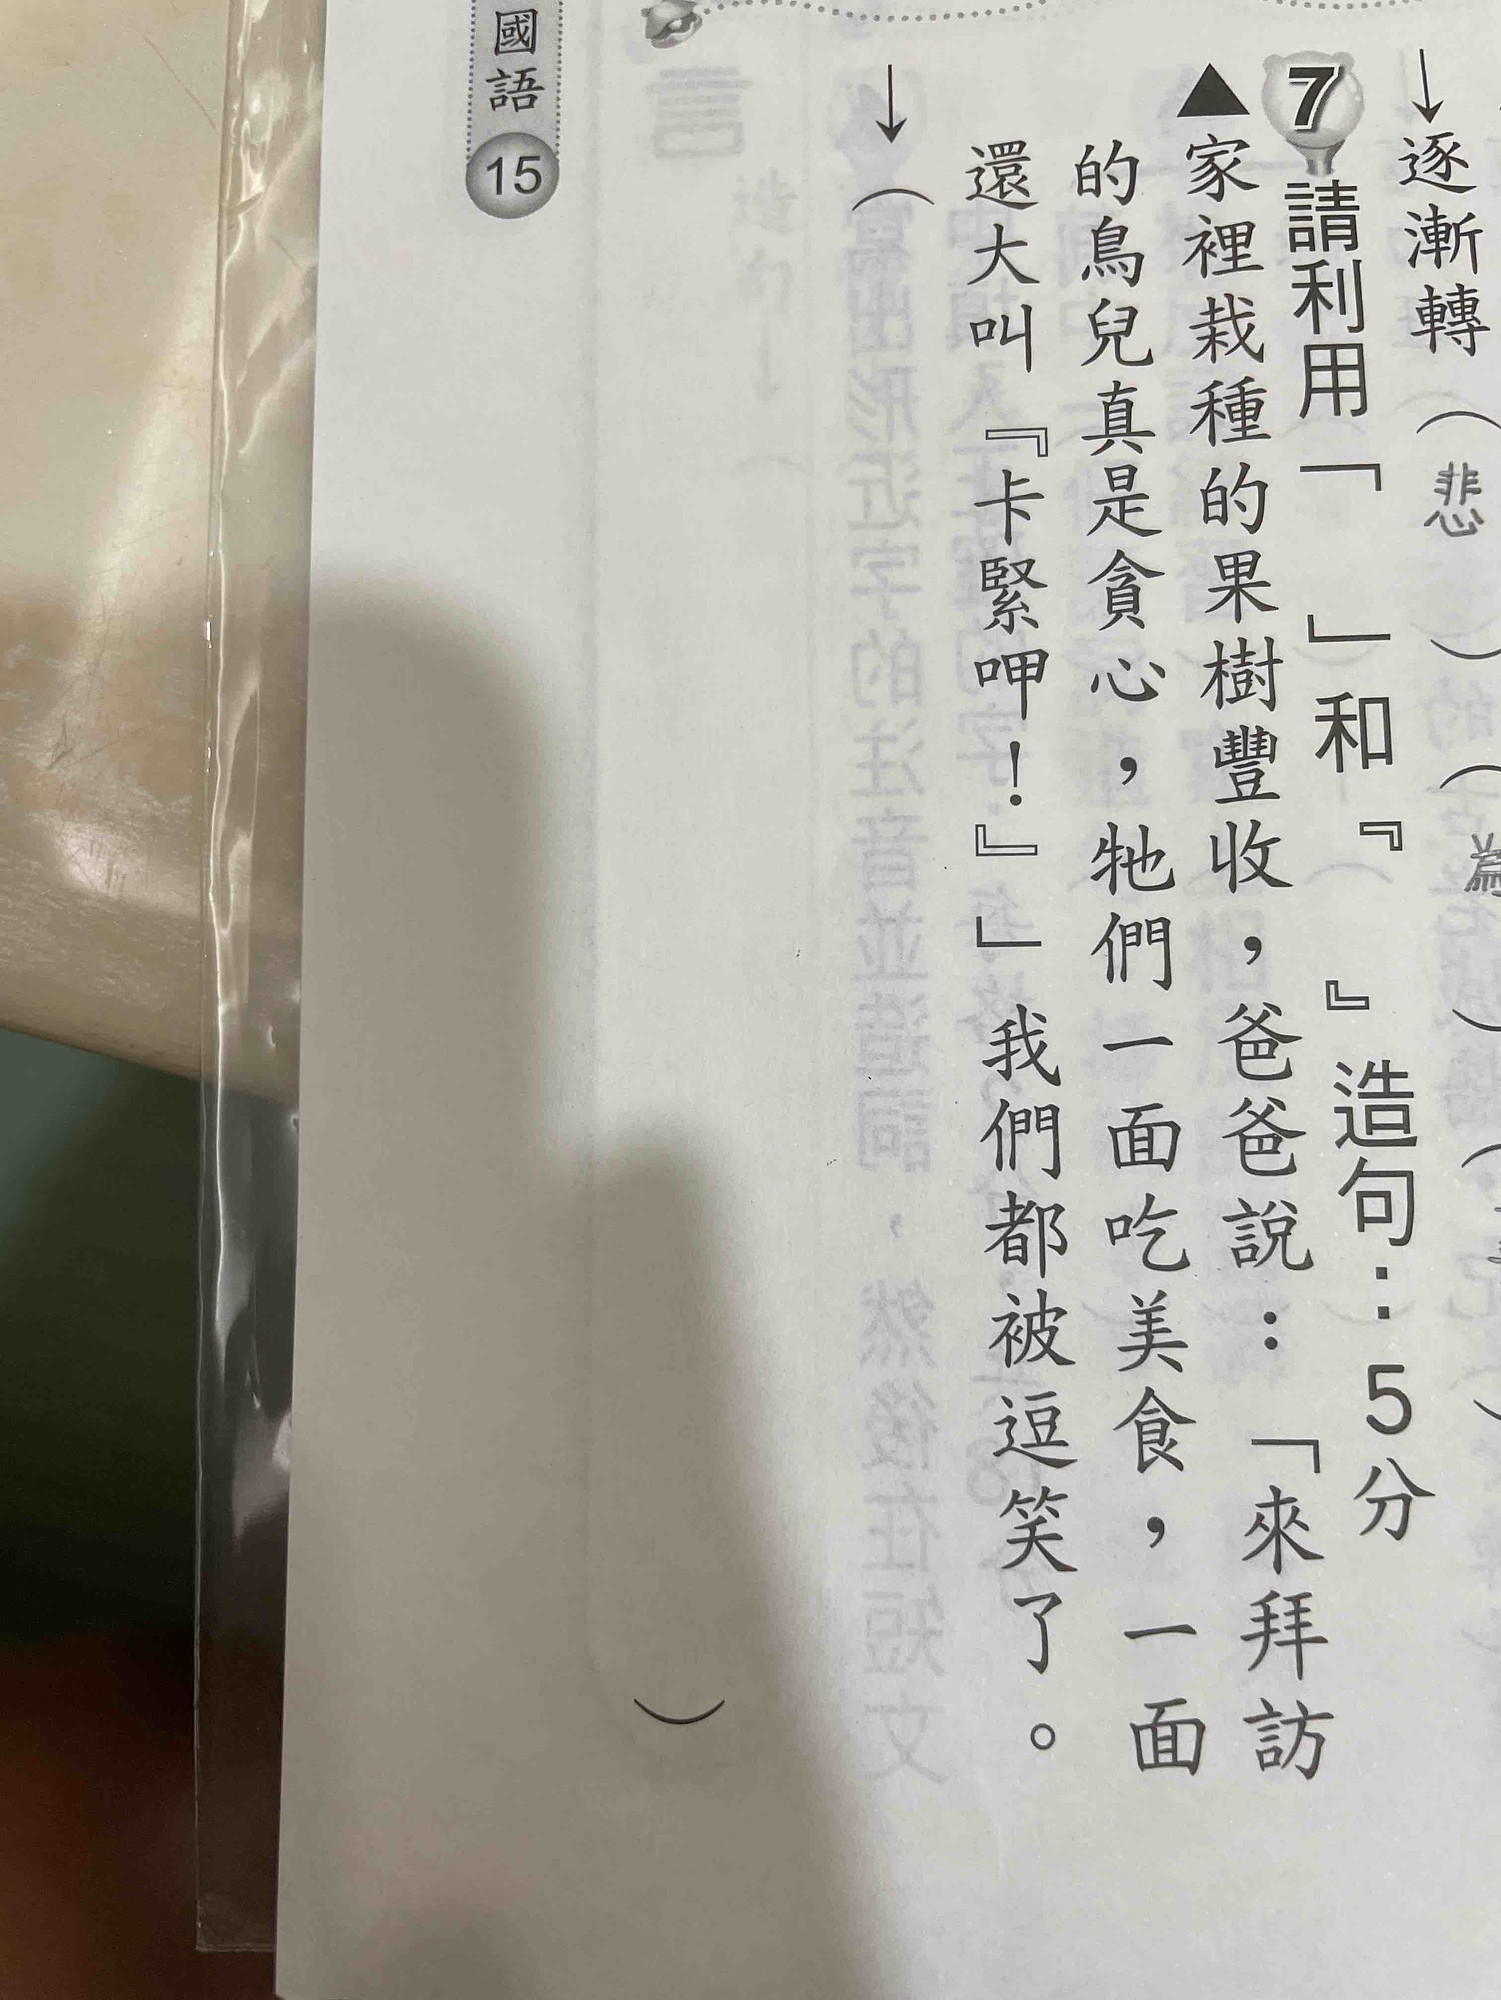 ↓逐漸轉（悲）（為
7請利用「　」和『　』造句：5分
▲家裡栽種的果樹豐收，爸爸說：「來拜訪
的鳥兒真是貪心，牠們一面吃美食，一面
還大叫『卡緊呷！』」我們都被逗笑了。
↓（
）
國語 15